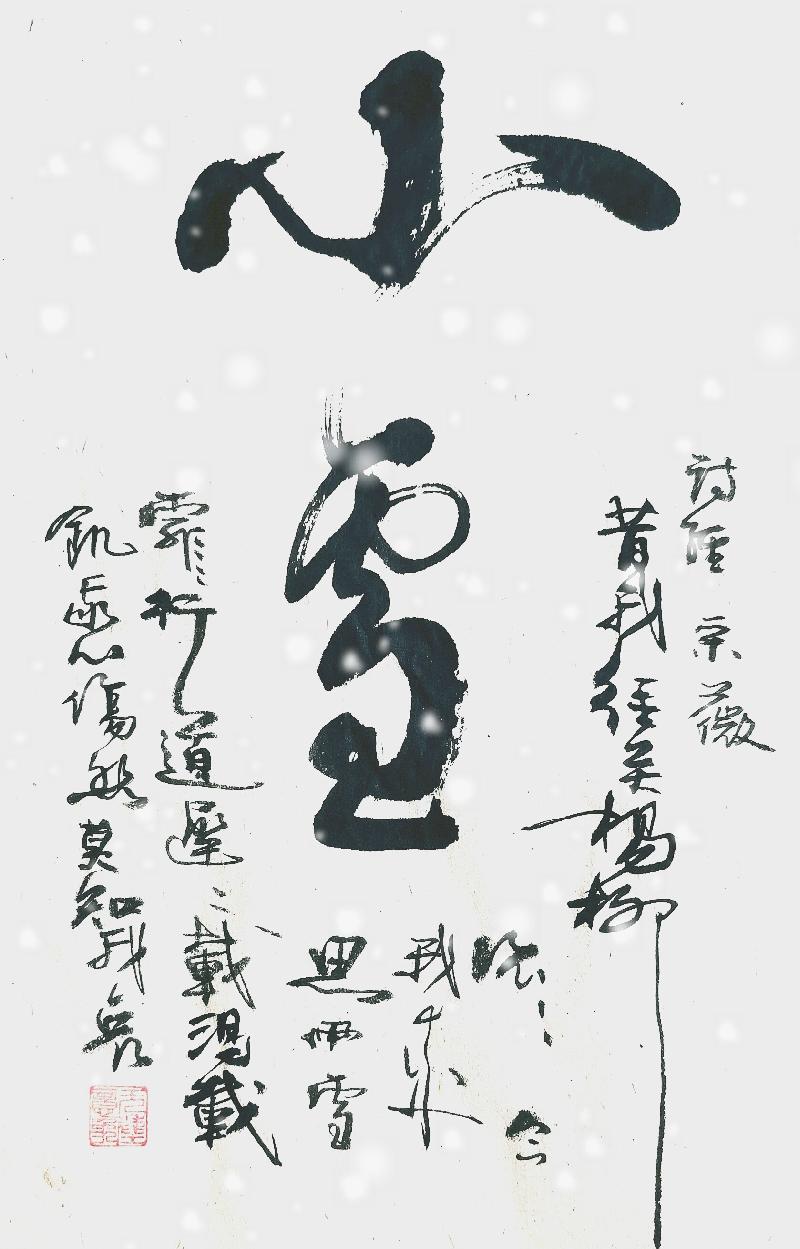 小雪
詩經 采薇
昔我往矣楊柳
依〻 今
我來
思雨雪
霏〻行道遲〻載渴載
飢心傷悲莫知我哀